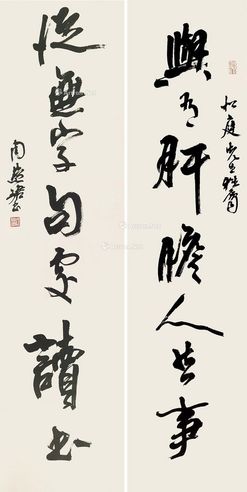 與有肝膽人共事
松庭先生雅屬
從無字句處讀書
周慧珺